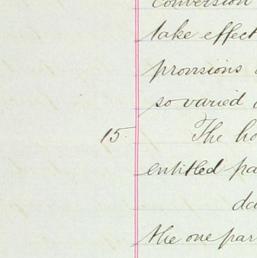 conversion
take effect
provisions
so varied
15. The ho
entitled pa
da
the one par